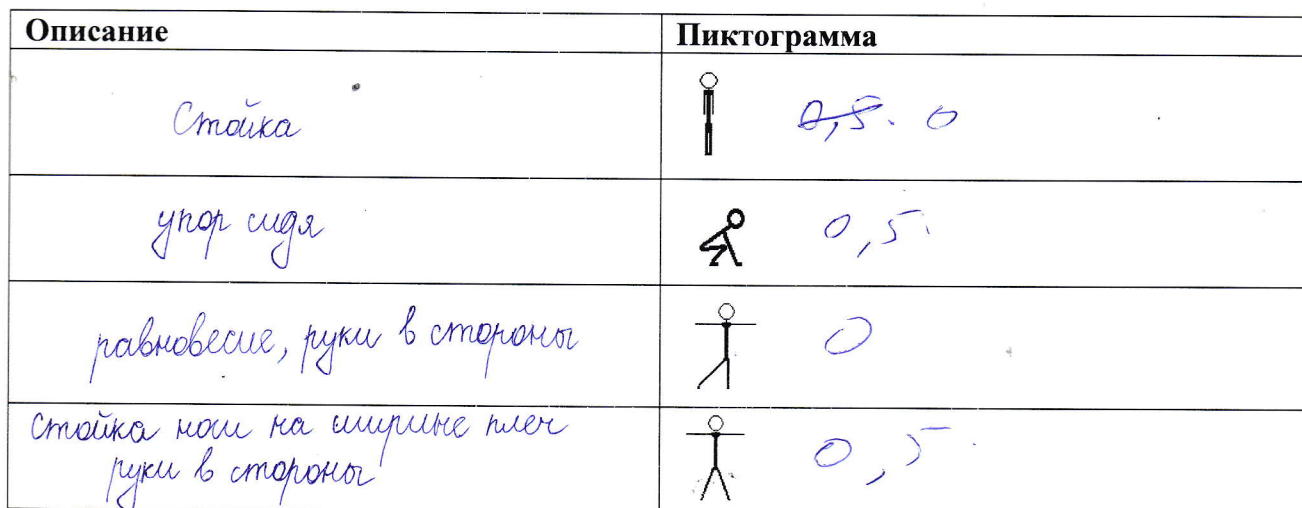 Описание Пиктограмма
Стойка 0,5. 0
упор сидя 0,5.
равновесие, руки в стороны 0
стойка ноги на ширине плеч 0,5
руки в стороны